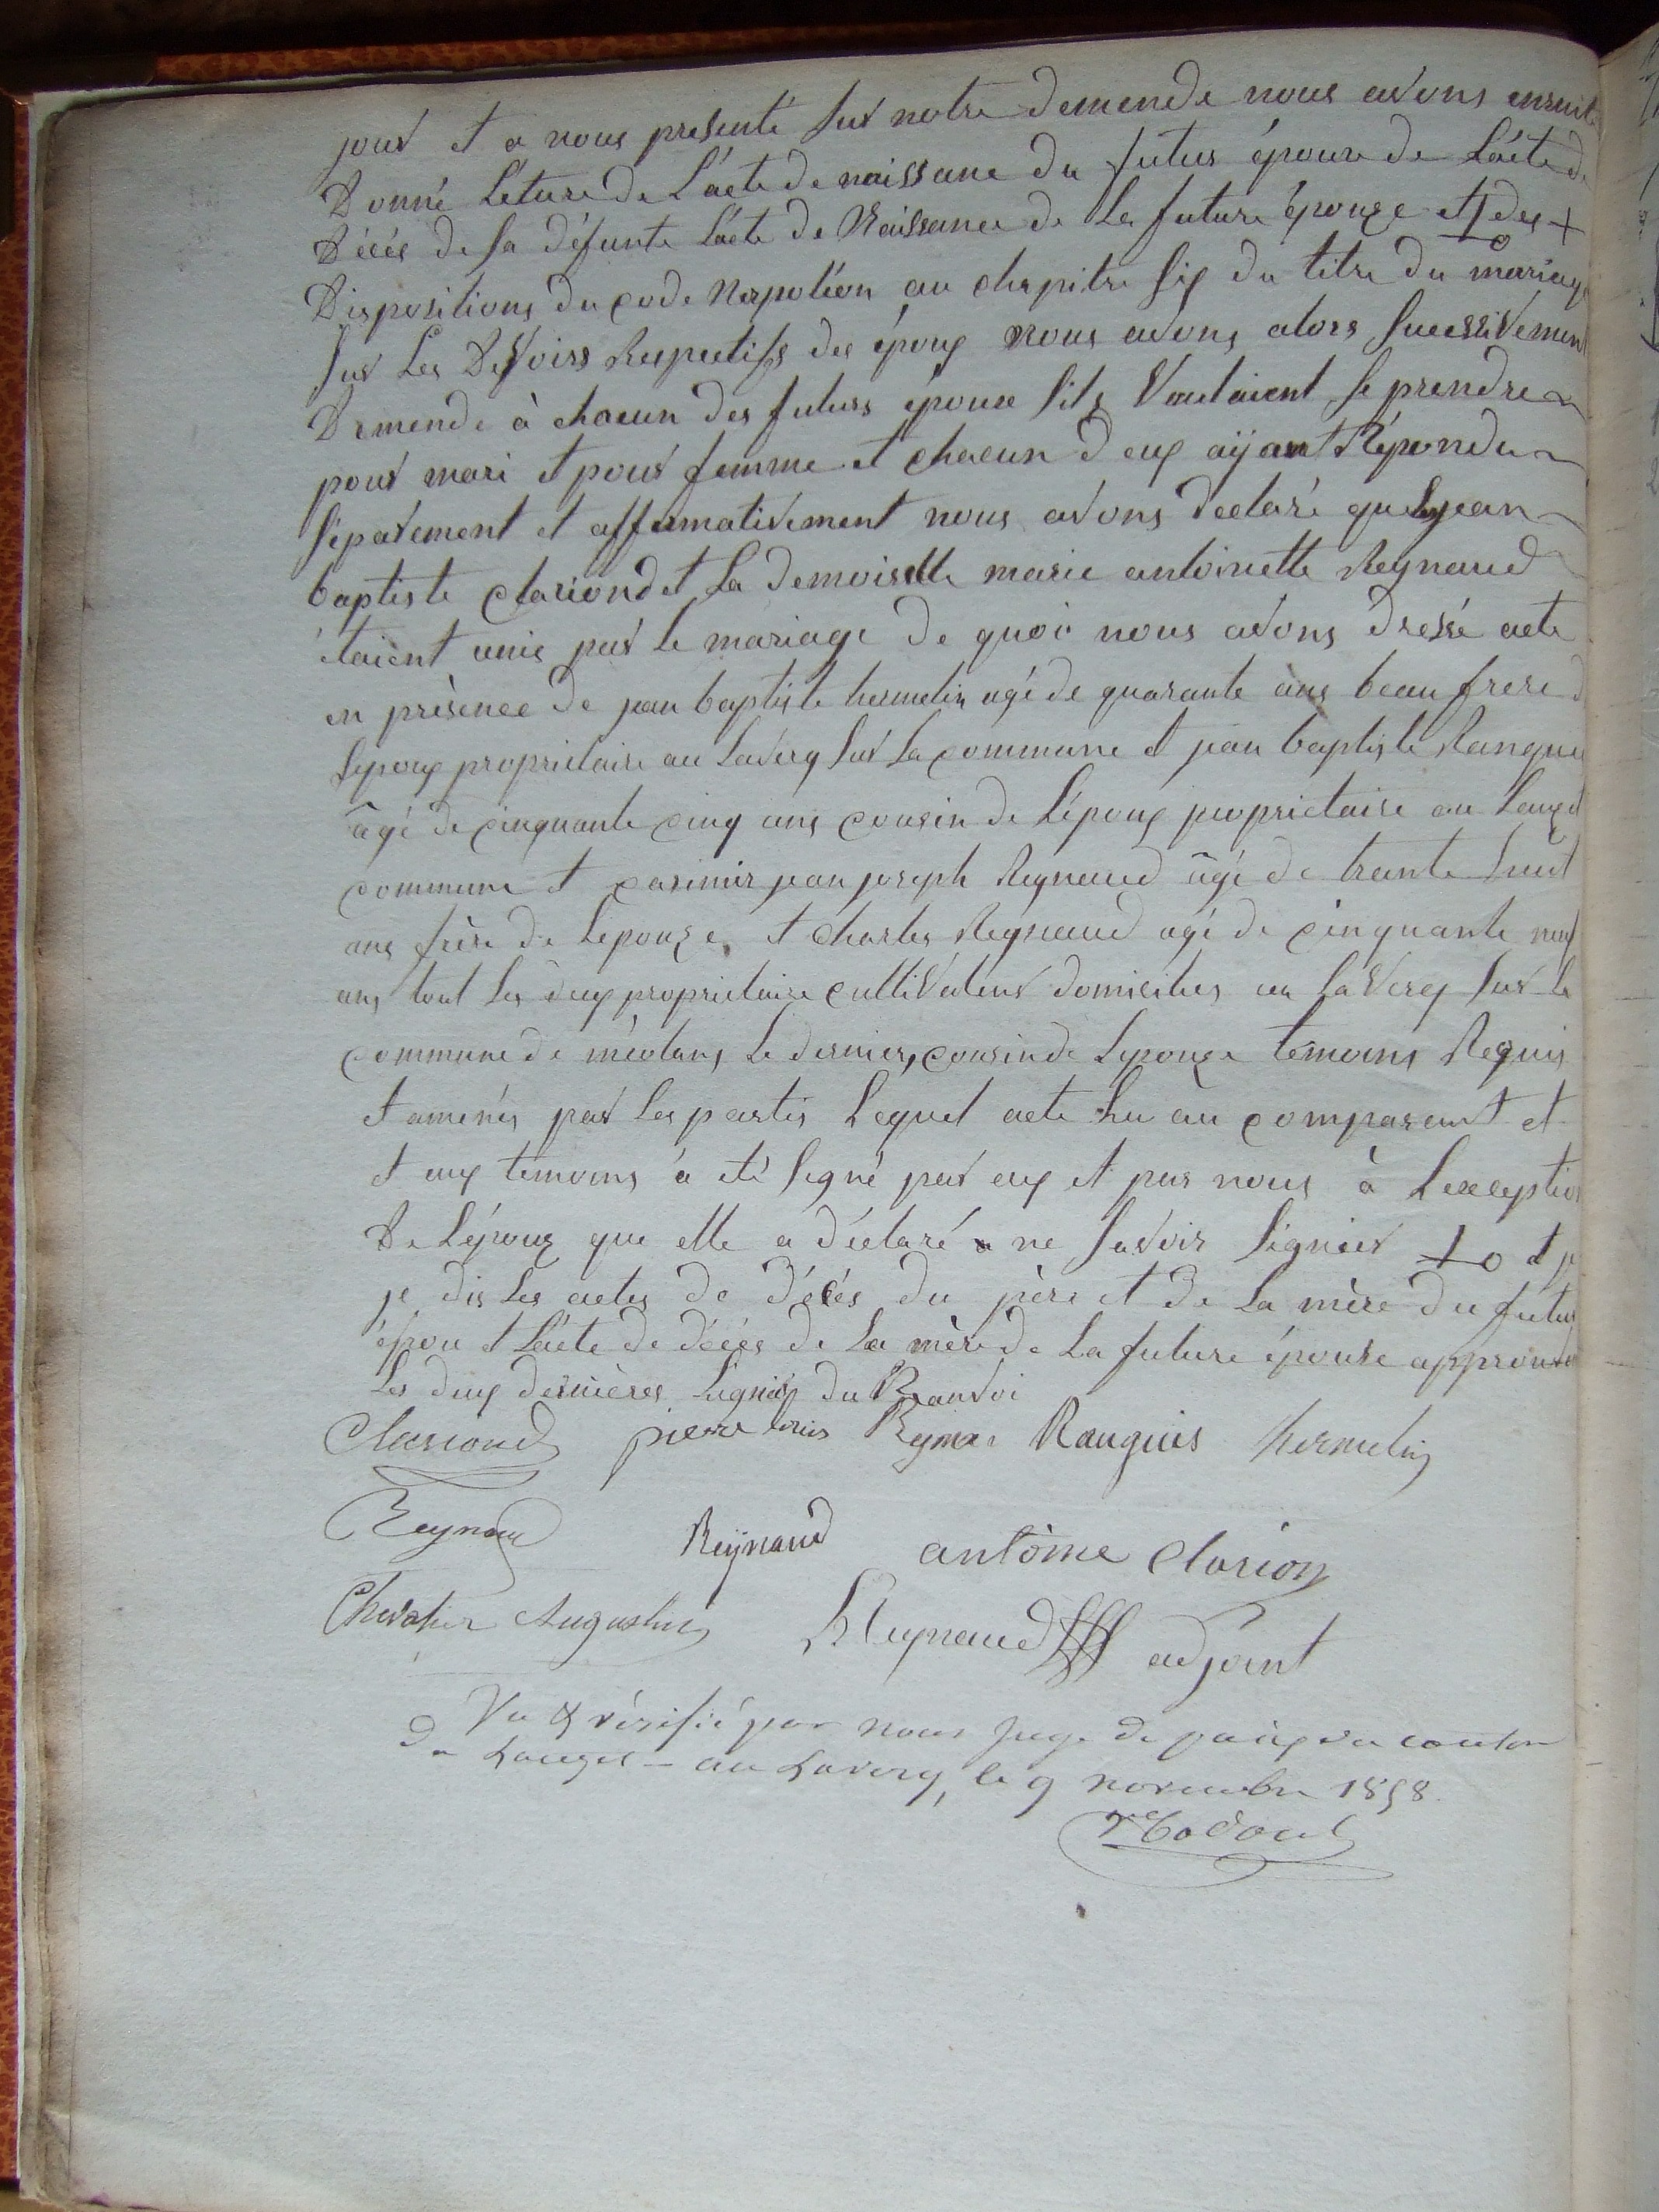 jour et a nous presenté sur notre demende nous avons ensuite
Donné léture de L'acte de naissance du futur époux de L'acte de
Décés de sa défunte L'acte de Naissance de La future épouze et des +
Dispositions du code Napoléon au chapitre six du titre du mariage
sur Les Devoirs Respectifs des époux nous avons alors successivement
Demende à chacun des futurs époux s'ils Voulaient se prendre
pour mari et pour femme et chacun d'eux aÿant Répondu
séparement et affirmativement nous avons declaré que jean
baptiste clariond et La demoiselle marie antoinette Reynaud
étaient unis par le mariage De quoi nous avons dressé acte
en présence de jean baptiste hermelin agé de quarante ans beau frere d
Lepoux proprietaire au Laverq sur La commune et jean baptiste Ranguis
âgé de cinquante cinq ans cousin de L'époux proprietaire au Lauzet
commune et casimir jean joseph Reynaud âgé de trente huit
ans frère de Lepouze et charles Reynaud agé de cinquante neuf
ans tout les deux proprietaire cultivateur domicilies au Laverq sur la
commune de méolans, Le dernier, cousin de Lepouze témoins Requis
et amenés par les partis Lequel acte Lu au comparant et
et aux témoins à été signé par eux et par nous à L'exception
De L'épouz que elle a déclaré ne savoir signier +o et je
je dis Les actes de décés du père et de La mère du futur
épou et L'acte de décés de La mère de La future épouse approuvé
Les deux dernières Lignes du Ranvoi
Clariond pierre Louis Reyna Ranguis hermelin
Reynaud Reÿnaud antoine Clarion
Chevatier Augustin Reynaud adjoint
Vu & vérifié par nous juge de paix du canton
du Lauzet - au Laverq, le 9 novembre 1858.